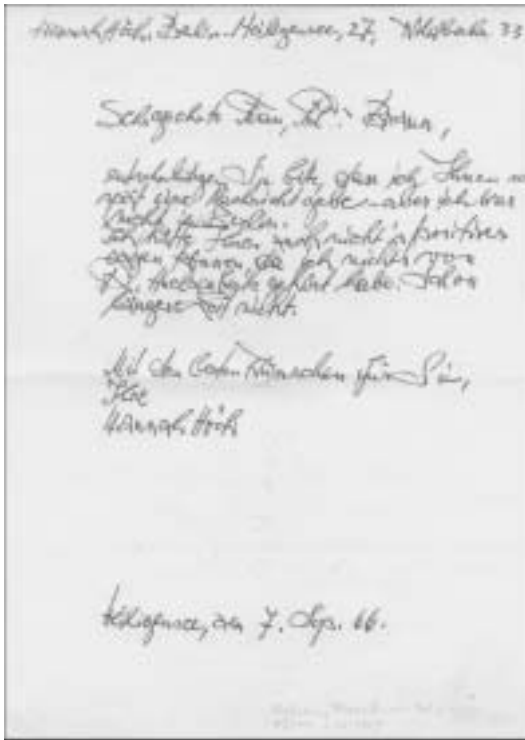 Hannah Höch, Berlin-Heiligensee, 27, 33
Sehr geehrte Frau,
entschuldigen Sie bitte, dass ich Ihnen so
spät eine Nachricht gebe – aber ich war
nicht in Berlin.
Ich hätte Ihnen auch nicht positives
sagen können, da ich nichts von
Dr. gehört habe. Schon
längere Zeit nicht.
Mit den besten Wünschen für Sie,
Ihre
Hannah Höch
Heiligensee, den 7. Sep. 66.